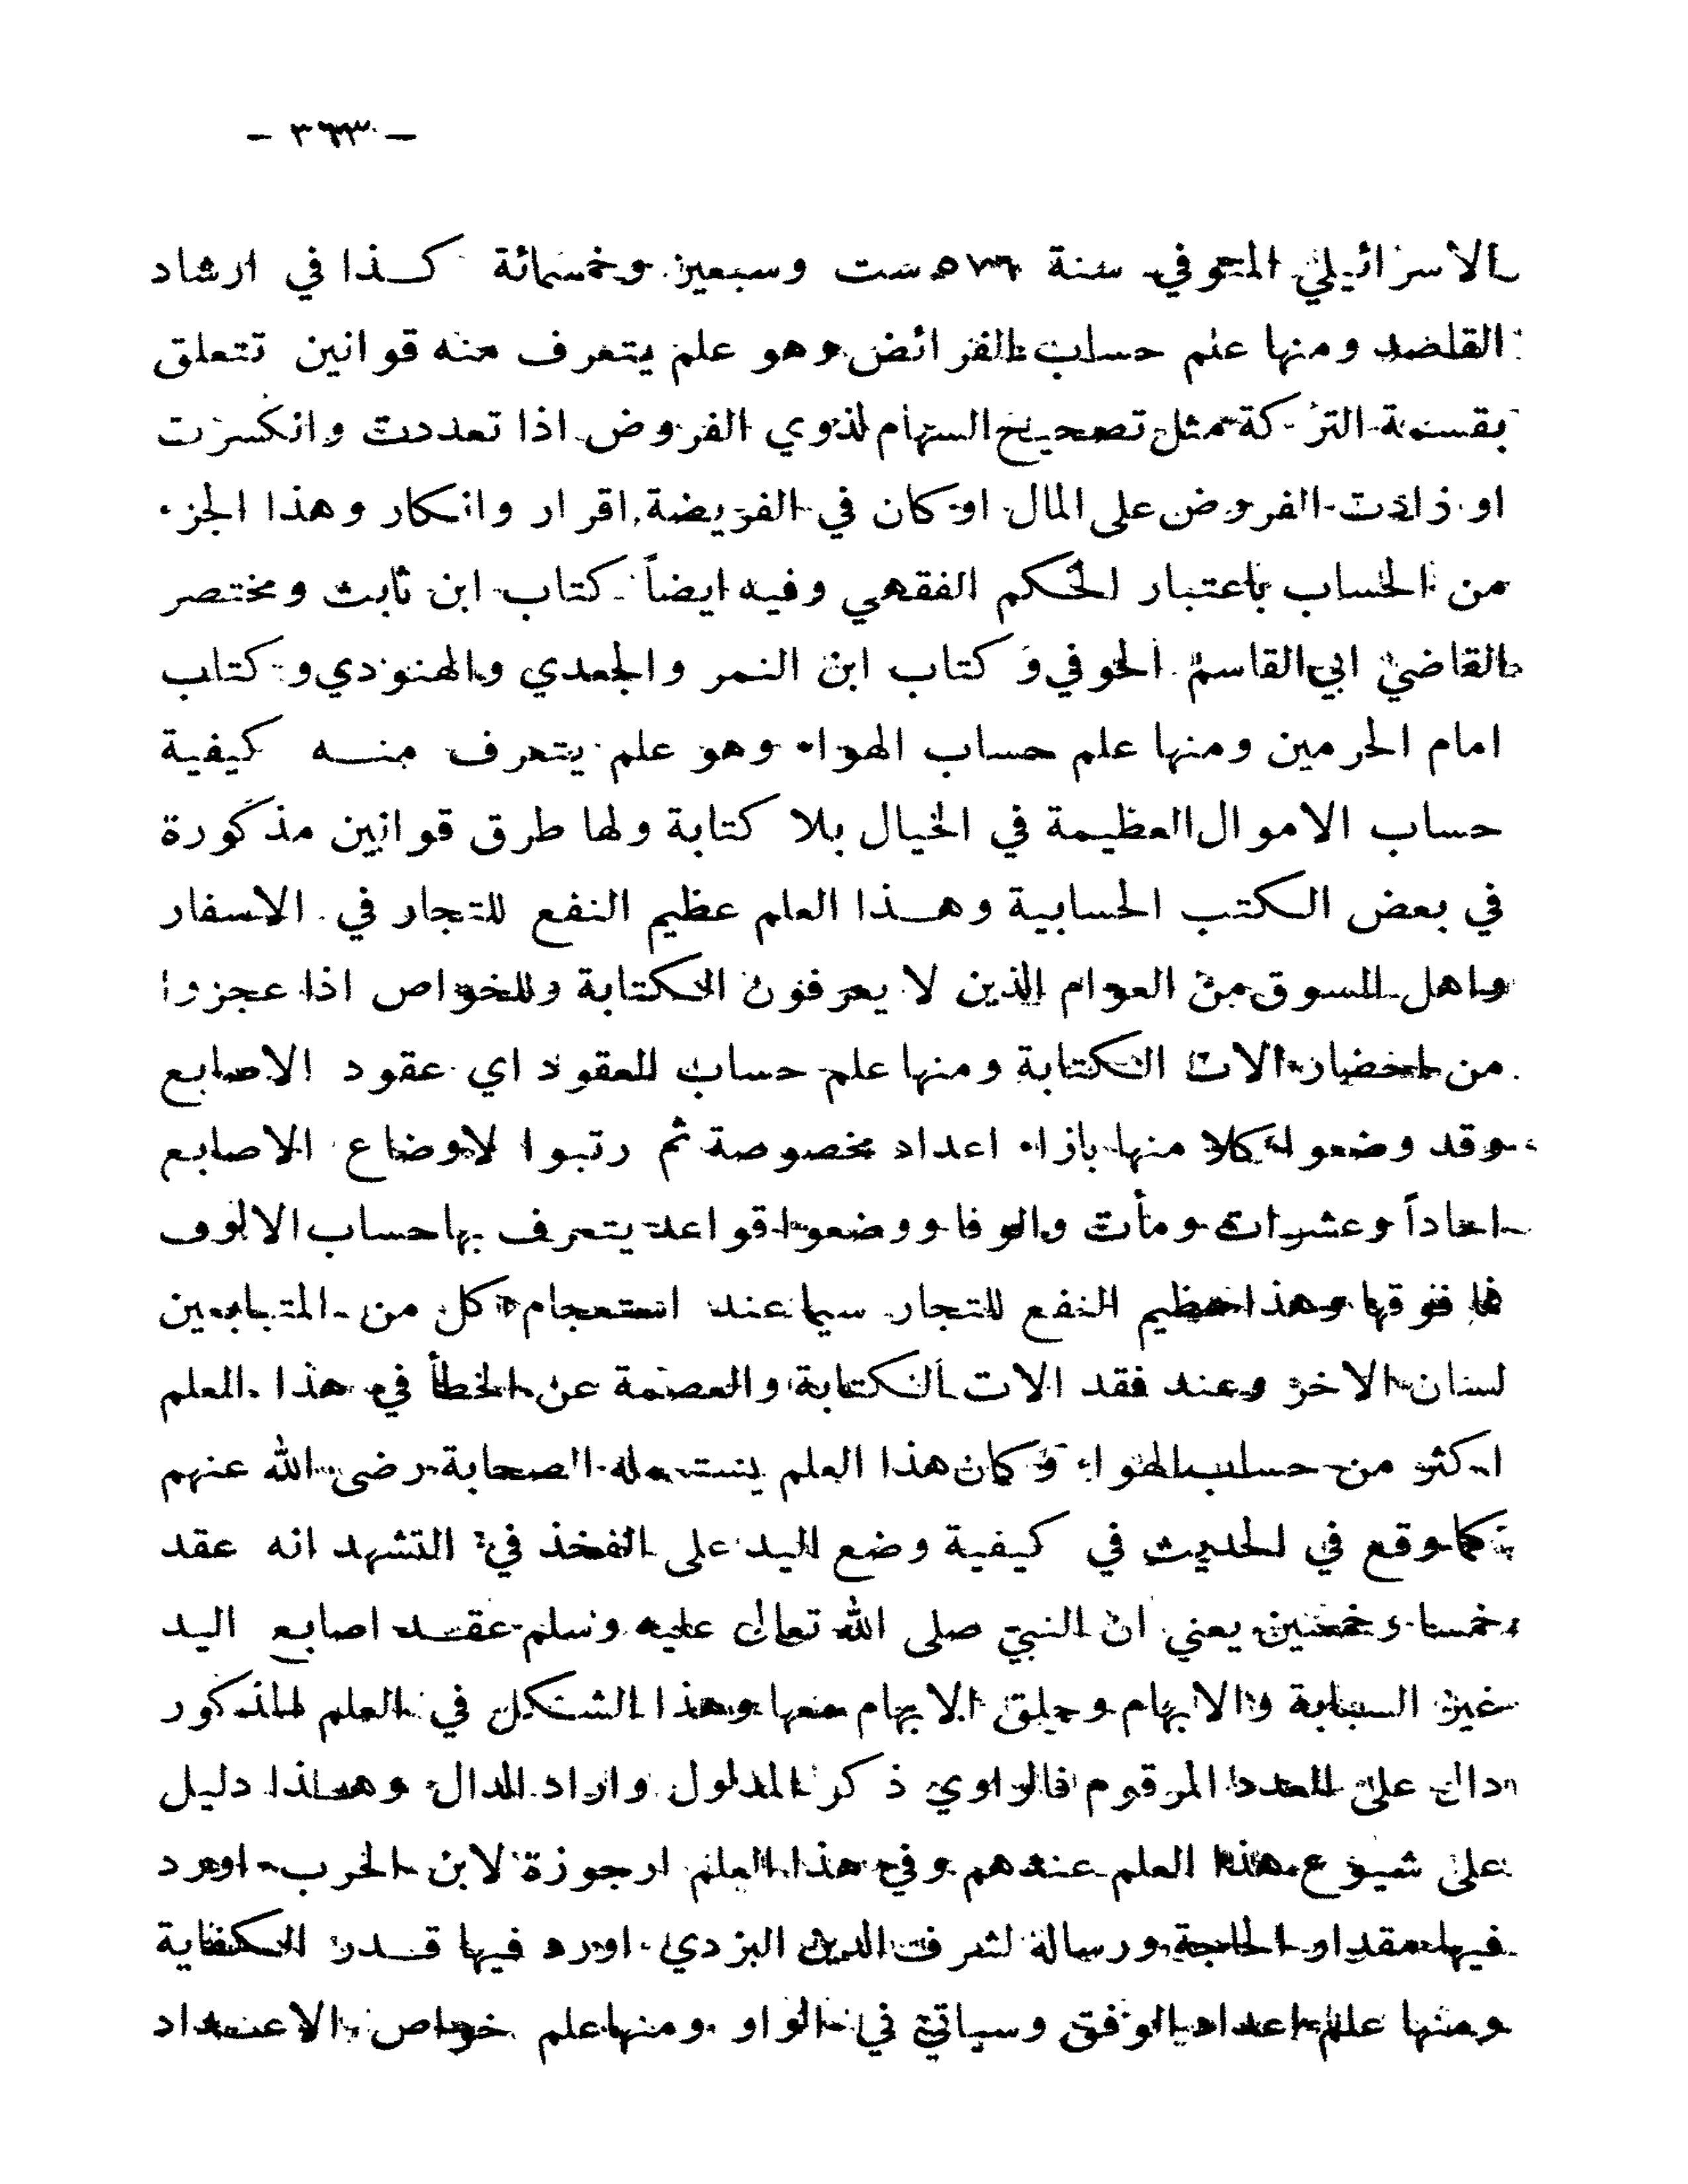 — ٣٦٣ —
الاسرائيلي المتوفي سنة ٥٧٦ ست وسبعين وخمسمائة كذا في ارشاد
القاصد ومنها علم حساب الفرائض وهو علم يتعرف منه قوانين تتعلق
بقسمة التركة مثل تصحيح السهام لذوي الفروض اذا تعددت وانكسرت
او زادت الفروض على المال او كان في الفريضة اقرار وانكار وهذا الجزء
من الحساب باعتبار الحكم الفقهي وفيه ايضاً كتاب ابن ثابت ومختصر
القاضي ابي القاسم الحوفي و كتاب ابن النمر والجعدي والهنودي و كتاب
امام الحرمين ومنها علم حساب الهواء وهو علم يتعرف منه كيفية
حساب الاموال العظيمة في الخيال بلا كتابة ولها طرق قوانين مذكورة
في بعض الكتب الحسابية وهذا العلم عظيم النفع للتجار في الاسفار
واهل السوق من العوام الذين لا يعرفون الكتابة وللخواص اذا عجزوا
من احضار الات الكتابة ومنها علم حساب العقود اي عقود الاصابع
وقد وضعوا كلا منها بازاء اعداد مخصوصة ثم رتبوا لاوضاع الاصابع
احاداً وعشرات ومأت والوفا ووضعوا قواعد يتعرف بها حساب الالوف
فما فوقها وهذا عظيم النفع للتجار سيما عند استعجام كل من المتبايعين
لسان الاخر وعند فقد الات الكتابة والعصمة عن الخطأ في هذا العلم
اكثر من حساب الهواء وكان هذا العلم يستعمله الصحابة رضى الله عنهم
كما وقع في الحديث في كيفية وضع اليد على الفخذ في التشهد انه عقد
خمسا وخمسين يعني ان النبي صلى الله تعالى عليه وسلم عقد اصابع اليد
غير السبابة والابهام وحلق الابهام معها وهذا الشكل في العلم المذكور
دال على العدد المرقوم فالراوي ذكر المدلول واراد الدال وهذا دليل
على شيوع هذا العلم عندهم وفي هذا العلم ارجوزة لابن الحرب اورد
فيها مقدار الحاجة ورسالة لشرف الدين اليزدي اورد فيها قدر الكفاية
ومنها علم اعداد الوفق وسياتي في الواو ومنها علم خواص الاعداد